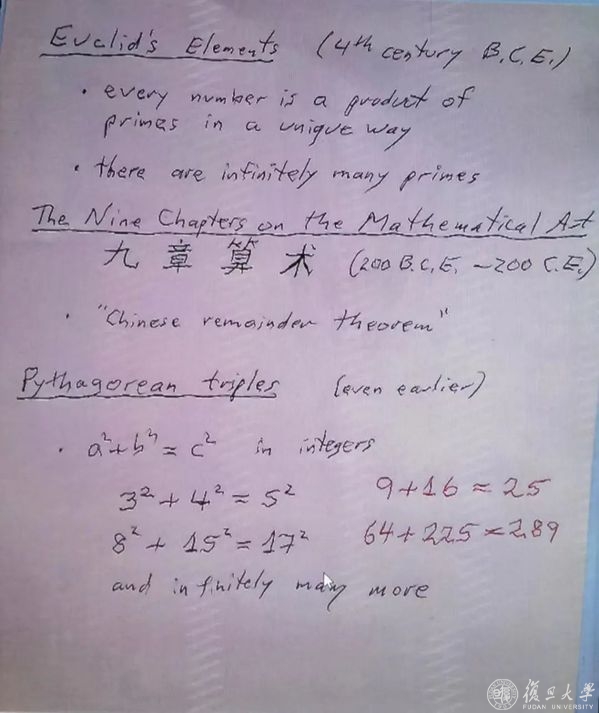 Euclid's Elements (4th century B.C.E.)
• every number is a product of
primes in a unique way
• there are infinitely many primes
The Nine Chapters on the Mathematical Art
九章算术 (200 B.C.E. ~200 C.E.)
• "Chinese remainder theorem"
Pythagorean triples (even earlier)
• a²+b²=c² in integers
3²+4²=5² 9+16=25
8²+15²=17² 64+225=289
and infinitely many more
復旦大學
FUDAN UNIVERSITY